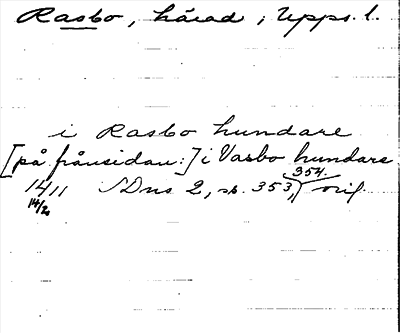 Rasbo, härad, Upps. l.
i Rasbo hundare
[på frånsidan:] i Vasbo hundare
1411 SDns 2, s. 353, 354. orig.
14/2